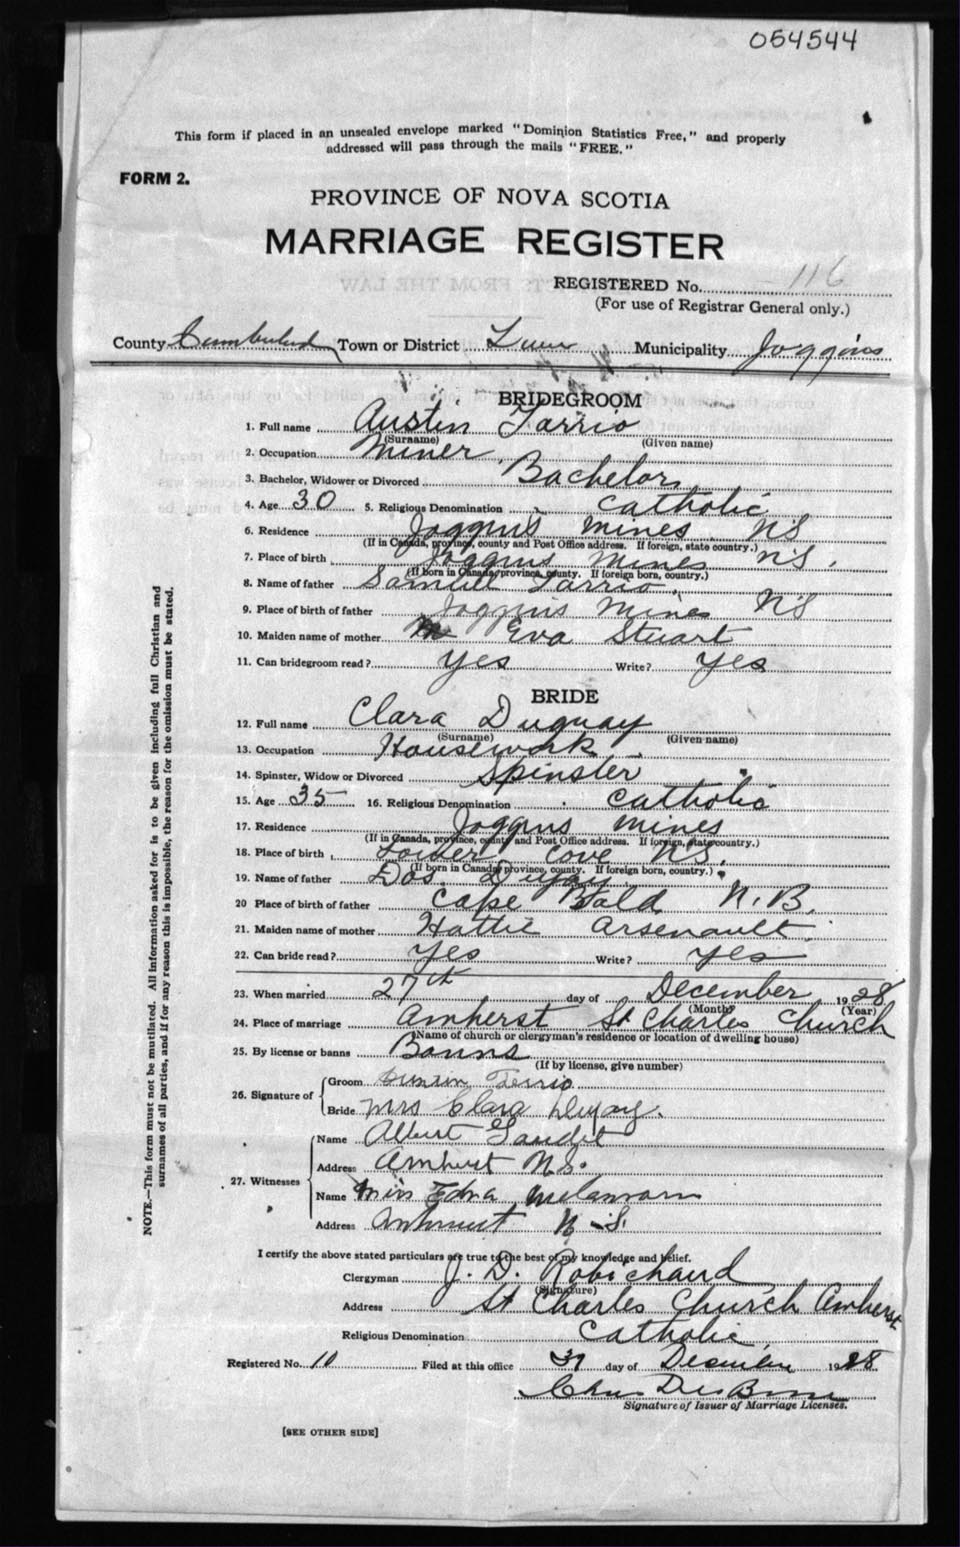 054544
This form if placed in an unsealed envelope marked "Dominion Statistics Free," and properly
addressed will pass through the mails "FREE."
FORM 2.
PROVINCE OF NOVA SCOTIA
MARRIAGE REGISTER
REGISTERED No. 116
(For use of Registrar General only.)
County Cumberland Town or District Municipality Joggins
BRIDEGROOM
1. Full name Austin Tarrio
(Surname) (Given name)
2. Occupation Miner
3. Bachelor, Widower or Divorced Bachelor
4. Age 30 5. Religious Denomination Catholic
6. Residence Joggins Mines NS
(If in Canada, province, county and Post Office address. If foreign, state country.)
7. Place of birth Joggins Mines NS.
(If born in Canada, province, county. If foreign born, country.)
8. Name of father Samuel Tarrio
9. Place of birth of father Joggins Mines NS
10. Maiden name of mother Eva Stuart
11. Can bridegroom read? Yes Write? Yes
BRIDE
12. Full name Clara Duguay
(Surname) (Given name)
13. Occupation Housework
14. Spinster, Widow or Divorced Spinster
15. Age 35 16. Religious Denomination Catholic
17. Residence Joggins Mines
(If in Canada, province, county and Post Office address. If foreign, state country.)
18. Place of birth Lower Cove NS.
(If born in Canada, province, county. If foreign born, country.)
19. Name of father
20 Place of birth of father Cape Bald N.B.
21. Maiden name of mother Hattie Arsenault
22. Can bride read? Yes Write? Yes
23. When married 27th day of December 1928
(Month) (Year)
24. Place of marriage Amherst St Charles Church
(Name of church or clergyman's residence or location of dwelling house)
25. By license or banns Banns
(If by license, give number)
26. Signature of
Groom Austin Terrio
Bride Mrs Clara Duguay.
27. Witnesses
Name Albert Gaudet
Address Amherst N.S.
Name Miss Edna Melanson
Address Amherst N.S.
I certify the above stated particulars are true to the best of my knowledge and belief.
Clergyman J. D. Robichaud
(Signature)
Address St Charles Church Amherst
Religious Denomination Catholic
Registered No. 10 Filed at this office 31 day of December 1928
Signature of Issuer of Marriage Licenses.
[SEE OTHER SIDE]
NOTE.—This form must not be mutilated. All information asked for is to be given including full Christian and
surnames of all parties, and if for any reason this is impossible, the reason for the omission must be stated.